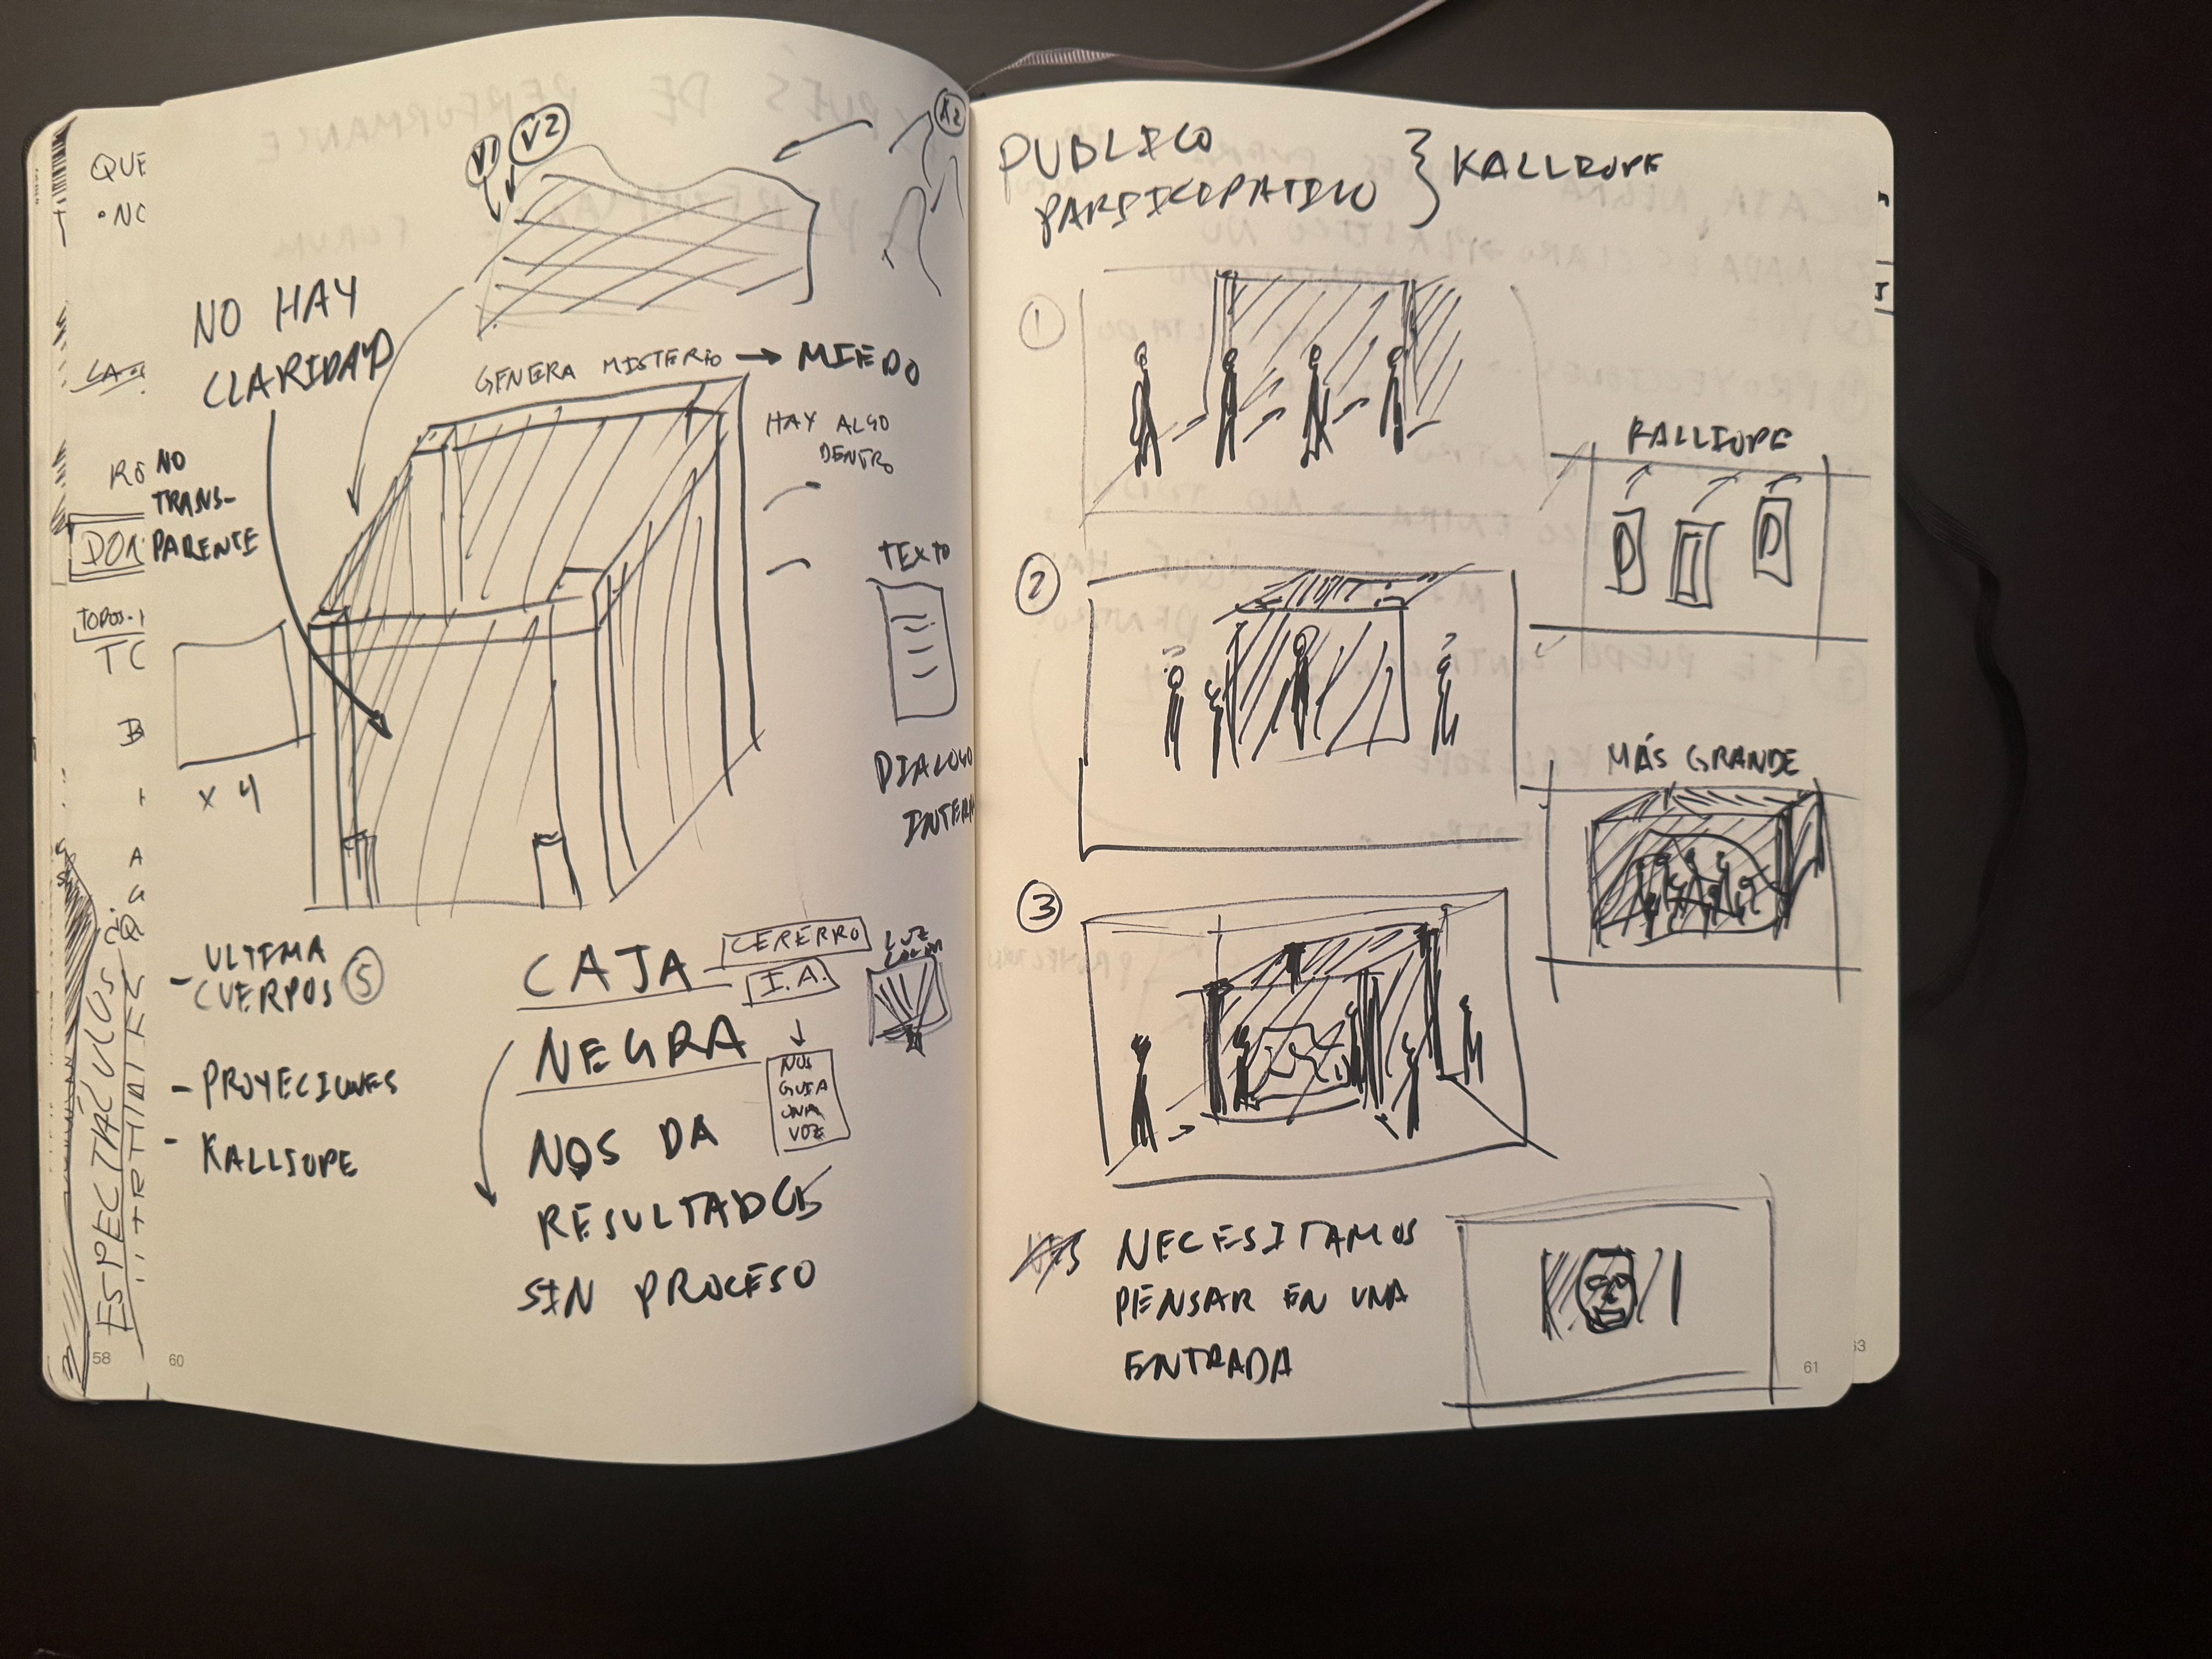 QUE
• NO
RO
DON
TODOS-
TO
ESPECTÁCULOS
58
V1
V2
NO HAY
CLARIDAD
GENERA MISTERIO → MIEDO
HAY ALGO
DENTRO
NO
TRANS-
PARENTE
TEXTO
x 4
DIALOGO
INTERN
- ULTIMA
CUERPOS ⑤
- PROYECIONES
- KALLIOPE
CAJA
NEGRA
CEREBRO
I.A.
NOS
GUIA
UNA
VOZ
NOS DA
RESULTADOS
SIN PROCESO
60
PUBLICO
PARTICIPATIVO } KALLIOPE
①
KALLIOPE
②
MÁS GRANDE
③
NECESITAMOS
PENSAR EN UNA
ENTRADA
61
63